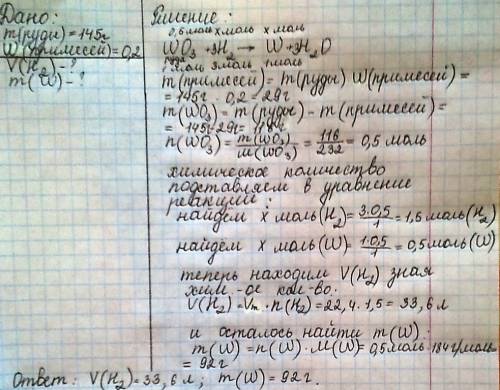 Дано:
m(руды)=145г
W(примесей)=0,2
V(H₂)-?
m(W)-?
Решение:
0,5моль xмоль xмоль
WO₃ +3H₂ → W+3H₂O
1моль 3моль 1моль
m(примесей)=m(руды) W(примесей)=
=145г · 0,2=29г
m(WO₃)=m(руды)-m(примесей)=
=145г-29г=116г
n(WO₃)=m(WO₃)/M(WO₃)=116/232=0,5моль
химическое количество
подставляем в уравнение
реакции:
найдём x моль(H₂)=3·0,5/1=1,5моль(H₂)
найдём x моль(W)=1·0,5/1=0,5моль(W)
теперь находим V(H₂) зная
хим-ое кол-во.
V(H₂)=Vm·n(H₂)=22,4·1,5=33,6л
и осталось найти m(W).
m(W)=n(W)·M(W)=0,5моль·184г/моль
=92г
Ответ: V(H₂)=33,6л; m(W)=92г.